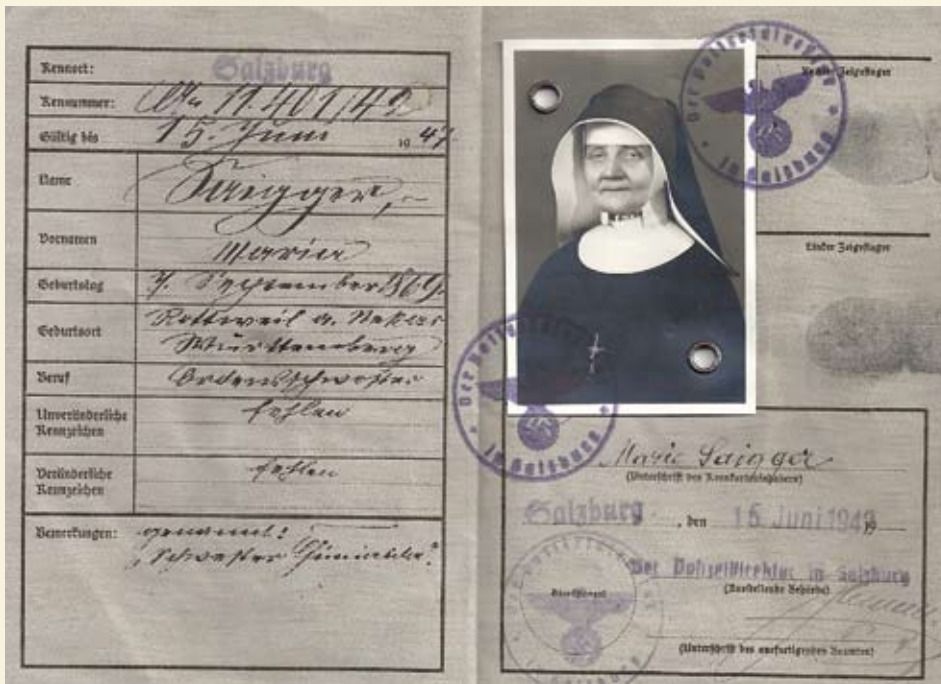 Kennort: Salzburg
Kennummer: 11.401/42
Gültig bis 15. Juni 1947
Name Saigger,-
Vornamen Maria
Geburtstag 7. September 1869.
Geburtsort Rottweil a. Neckar
Württemberg
Beruf Ordensschwester
Unveränderliche Kennzeichen fehlen
Veränderliche Kennzeichen fehlen
Bemerkungen: genannt:
Schwester
Rechter Zeigefinger
Linker Zeigefinger
Der Polizeidirektor in Salzburg
Der Polizeidirektor in Salzburg
Marie Saigger
(Unterschrift des Kennkarteninhabers)
Salzburg, den 15 Juni 1942
Der Polizeidirektor in Salzburg
(Ausstellende Behörde)
Dienststempel
(Unterschrift des ausfertigenden Beamten)